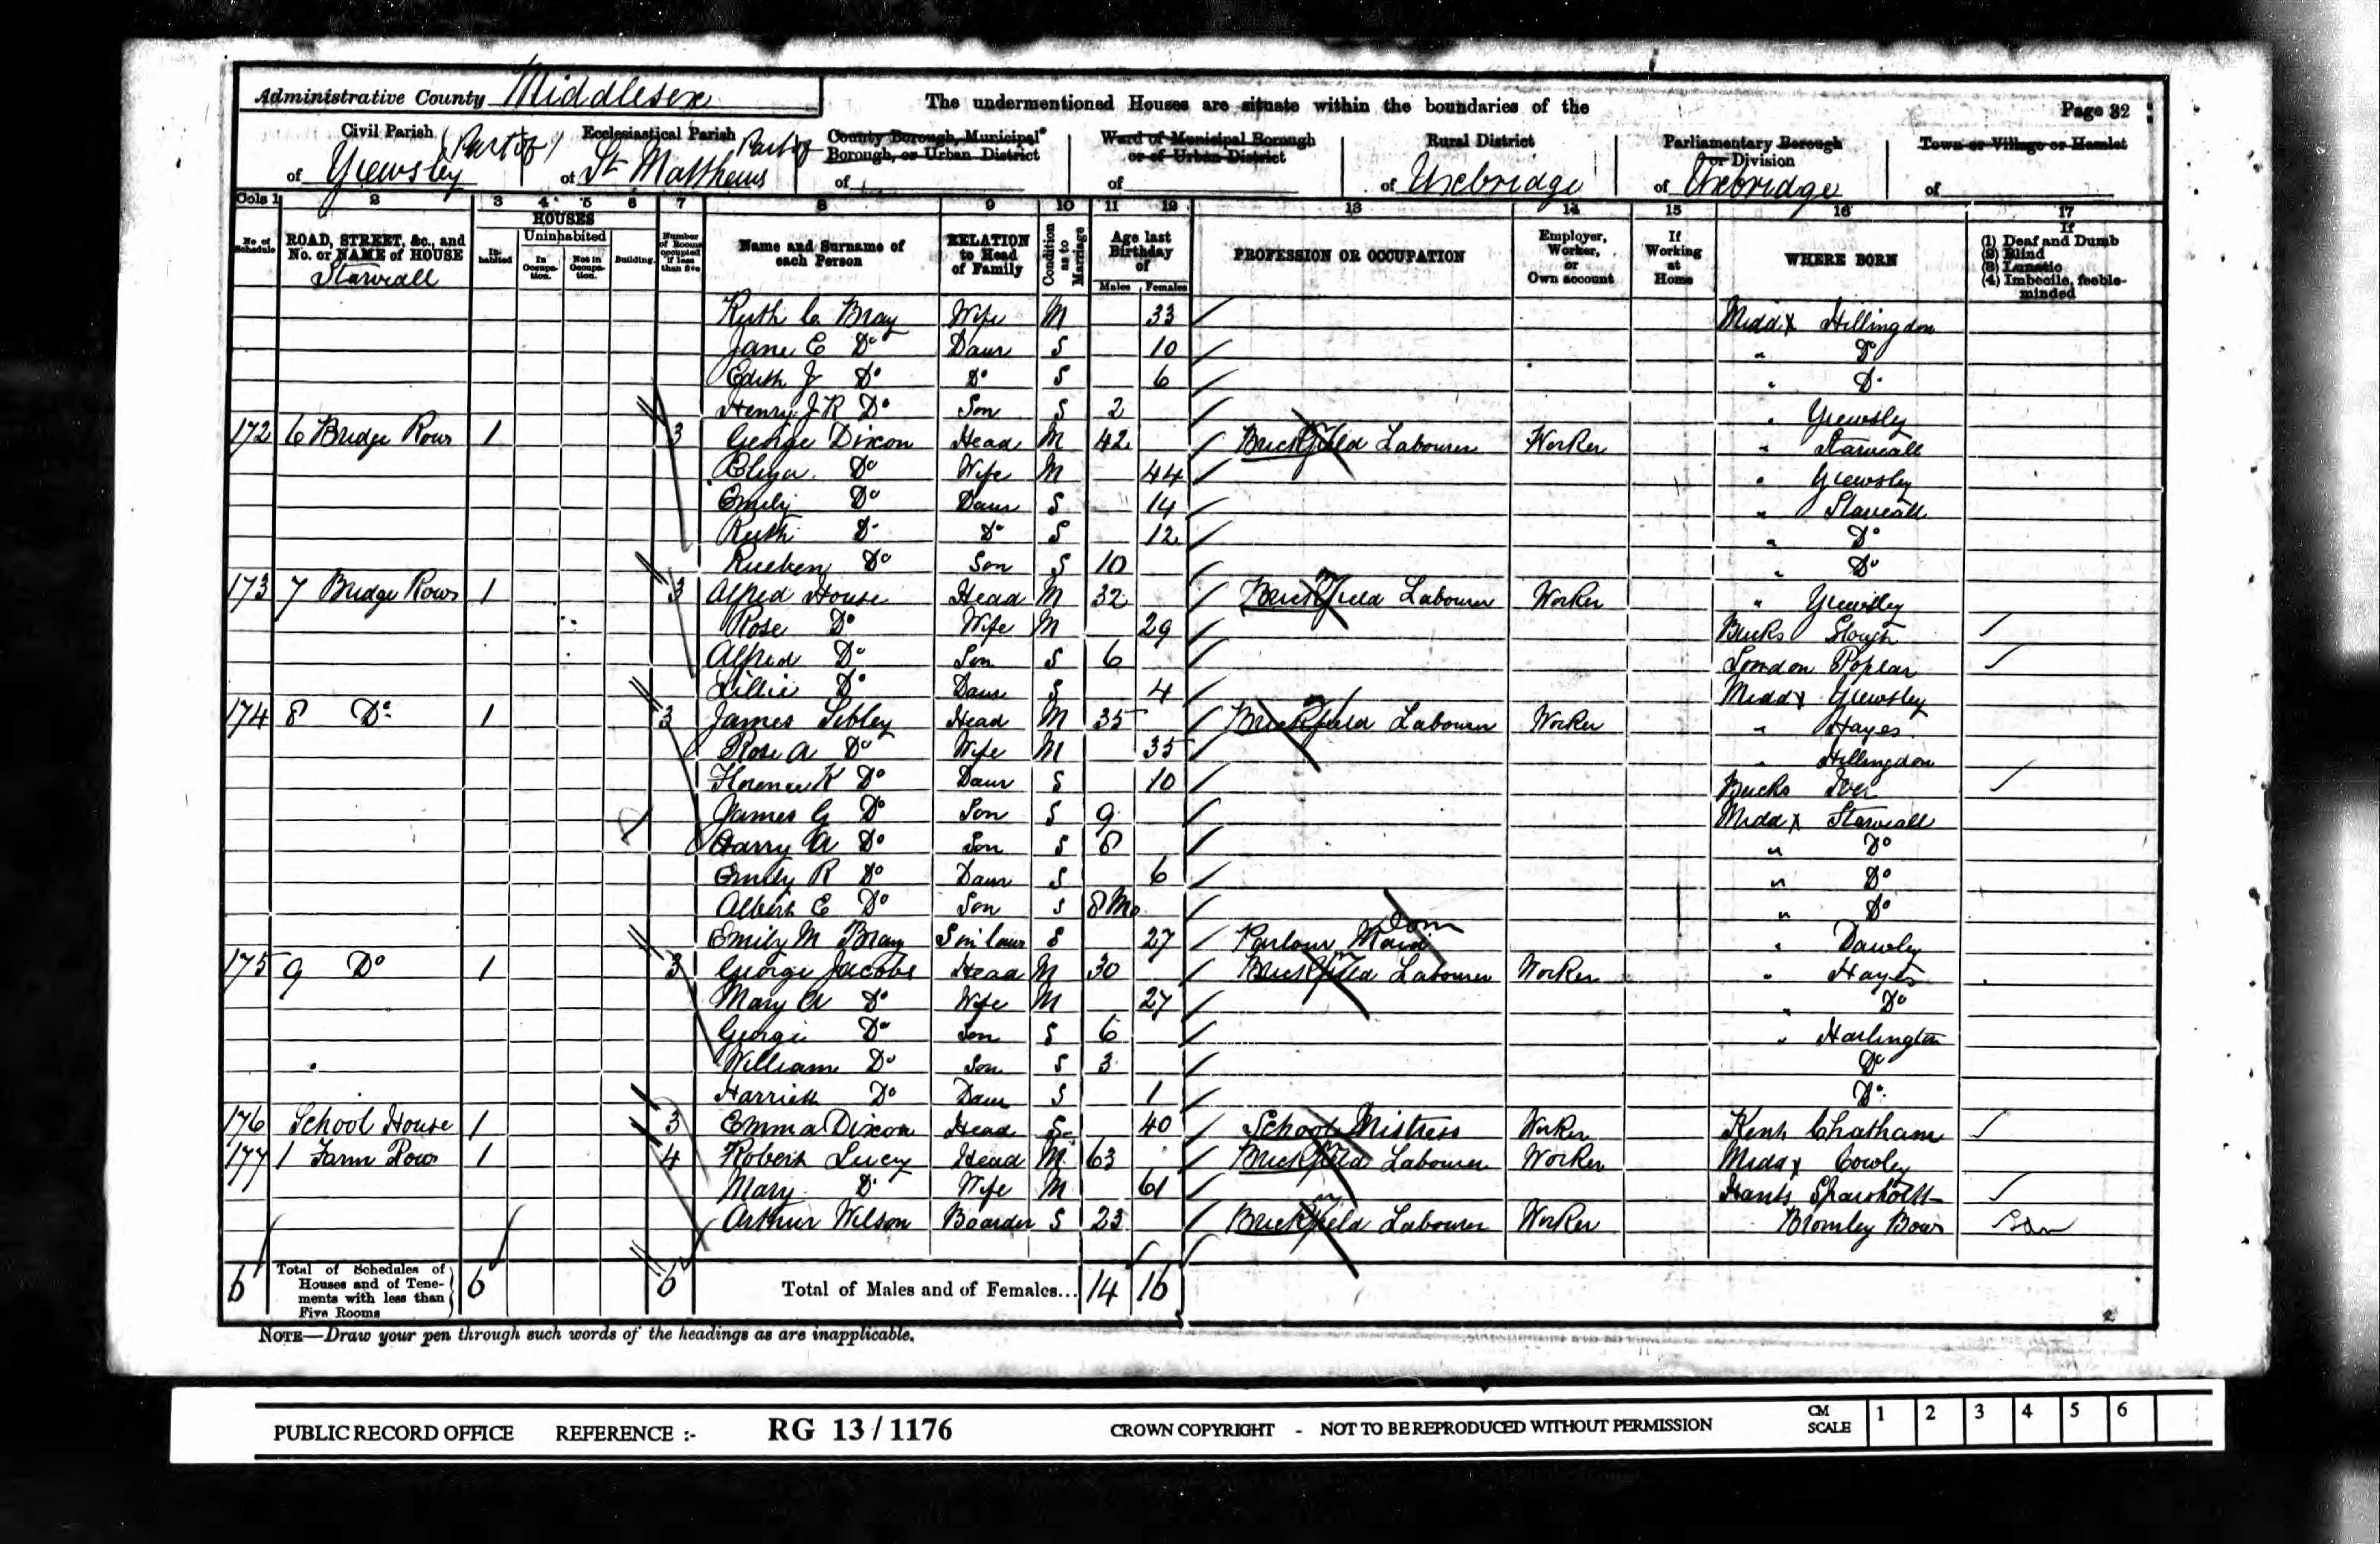 Administrative County Middlesex
The undermentioned Houses are situate within the boundaries of the
Page 32
Civil Parish (Part of) of Yiewsley
Ecclesiastical Parish Part of of St Matthews
County Borough, Municipal Borough, or Urban District of
Ward of Municipal Borough or of Urban District of
Rural District of Uxbridge
Parliamentary Borough or Division of Uxbridge
Town or Village or Hamlet of
Cols 1 2 3 4 5 6 7 8 9 10 11 12 13 14 15 16 17
No. of Schedule
ROAD, STREET, &c., and No. or NAME of HOUSE
Starveall
HOUSES
Inhabited
Uninhabited
In Occupation.
Not in Occupation.
Building.
Number of Rooms occupied if less than five
Name and Surname of each Person
RELATION to Head of Family
Condition as to Marriage
Age last Birthday of
Males Females
PROFESSION OR OCCUPATION
Employer, Worker, or Own account
If Working at Home
WHERE BORN
If
(1) Deaf and Dumb
(2) Blind
(3) Lunatic
(4) Imbecile, feeble-minded
Ruth C. Bray Wife M 33 Middx Hillingdon
Jane E Do Daur S 10 " Do
Edith J Do Do S 6 " Do
Henry J R Do Son S 2 " Yiewsley
172 6 Bridge Row 1 3 George Dixon Head M 42 Brickfield Labourer Worker " Starveall
Eliza Do Wife M 44 " Yiewsley
Emily Do Daur S 14 " Starveall
Ruth Do Do S 12 " Do
Rueben Do Son S 10 " Do
173 7 Bridge Row 1 3 Alfred House Head M 32 Brickfield Labourer Worker " Yiewsley
Rose Do Wife M 29 Bucks Slough
Alfred Do Son S 6 London Poplar
Lillie Do Daur S 4 Middx Yiewsley
174 8 Do 1 3 James Sibley Head M 35 Brickfield Labourer Worker " Hayes
Rose A Do Wife M 35 " Hillingdon
Florence K Do Daur S 10 Bucks Iver
James G Do Son S 9 Middx Starveall
Harry A Do Son S 8 " Do
Emily R Do Daur S 6 " Do
Albert E Do Son S 8 Mo " Do
Emily M Bray S in law S 27 Parlour Maid Dom " Dawley
175 9 Do 1 3 George Jacobs Head M 30 Brickfield Labourer Worker " Hayes
Mary A Do Wife M 27 " Do
George Do Son S 6 " Harlington
William Do Son S 3 Do
Harriett Do Daur S 1 Do
176 School House 1 3 Emma Dixon Head S 40 School Mistress Worker Kent Chatham
177 1 Farm Row 1 4 Robert Lucy Head M 63 Brickfield Labourer Worker Middx Cowley
Mary Do Wife M 61 Hants Sparsholt
Arthur Wilson Boarder S 23 Brickfield Labourer Worker Bromley Bow
6 Total of Schedules of Houses and of Tenements with less than Five Rooms 6 6 Total of Males and of Females... 14 16
NOTE—Draw your pen through such words of the headings as are inapplicable.
PUBLIC RECORD OFFICE REFERENCE :- RG 13 / 1176 CROWN COPYRIGHT - NOT TO BE REPRODUCED WITHOUT PERMISSION CM SCALE 1 2 3 4 5 6